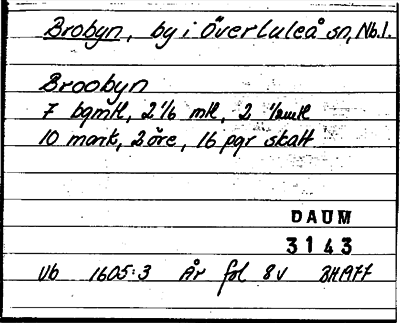 Brobyn, by i Överluleå sn, Nb.l.
Broobyn
7 bgmtl, 2 1/6 mtl, 2 1/2mtl
10 mark, 2 öre, 16 pgr skatt
DAUM
3143
Vb 1605:3 År fol 8v BH1977